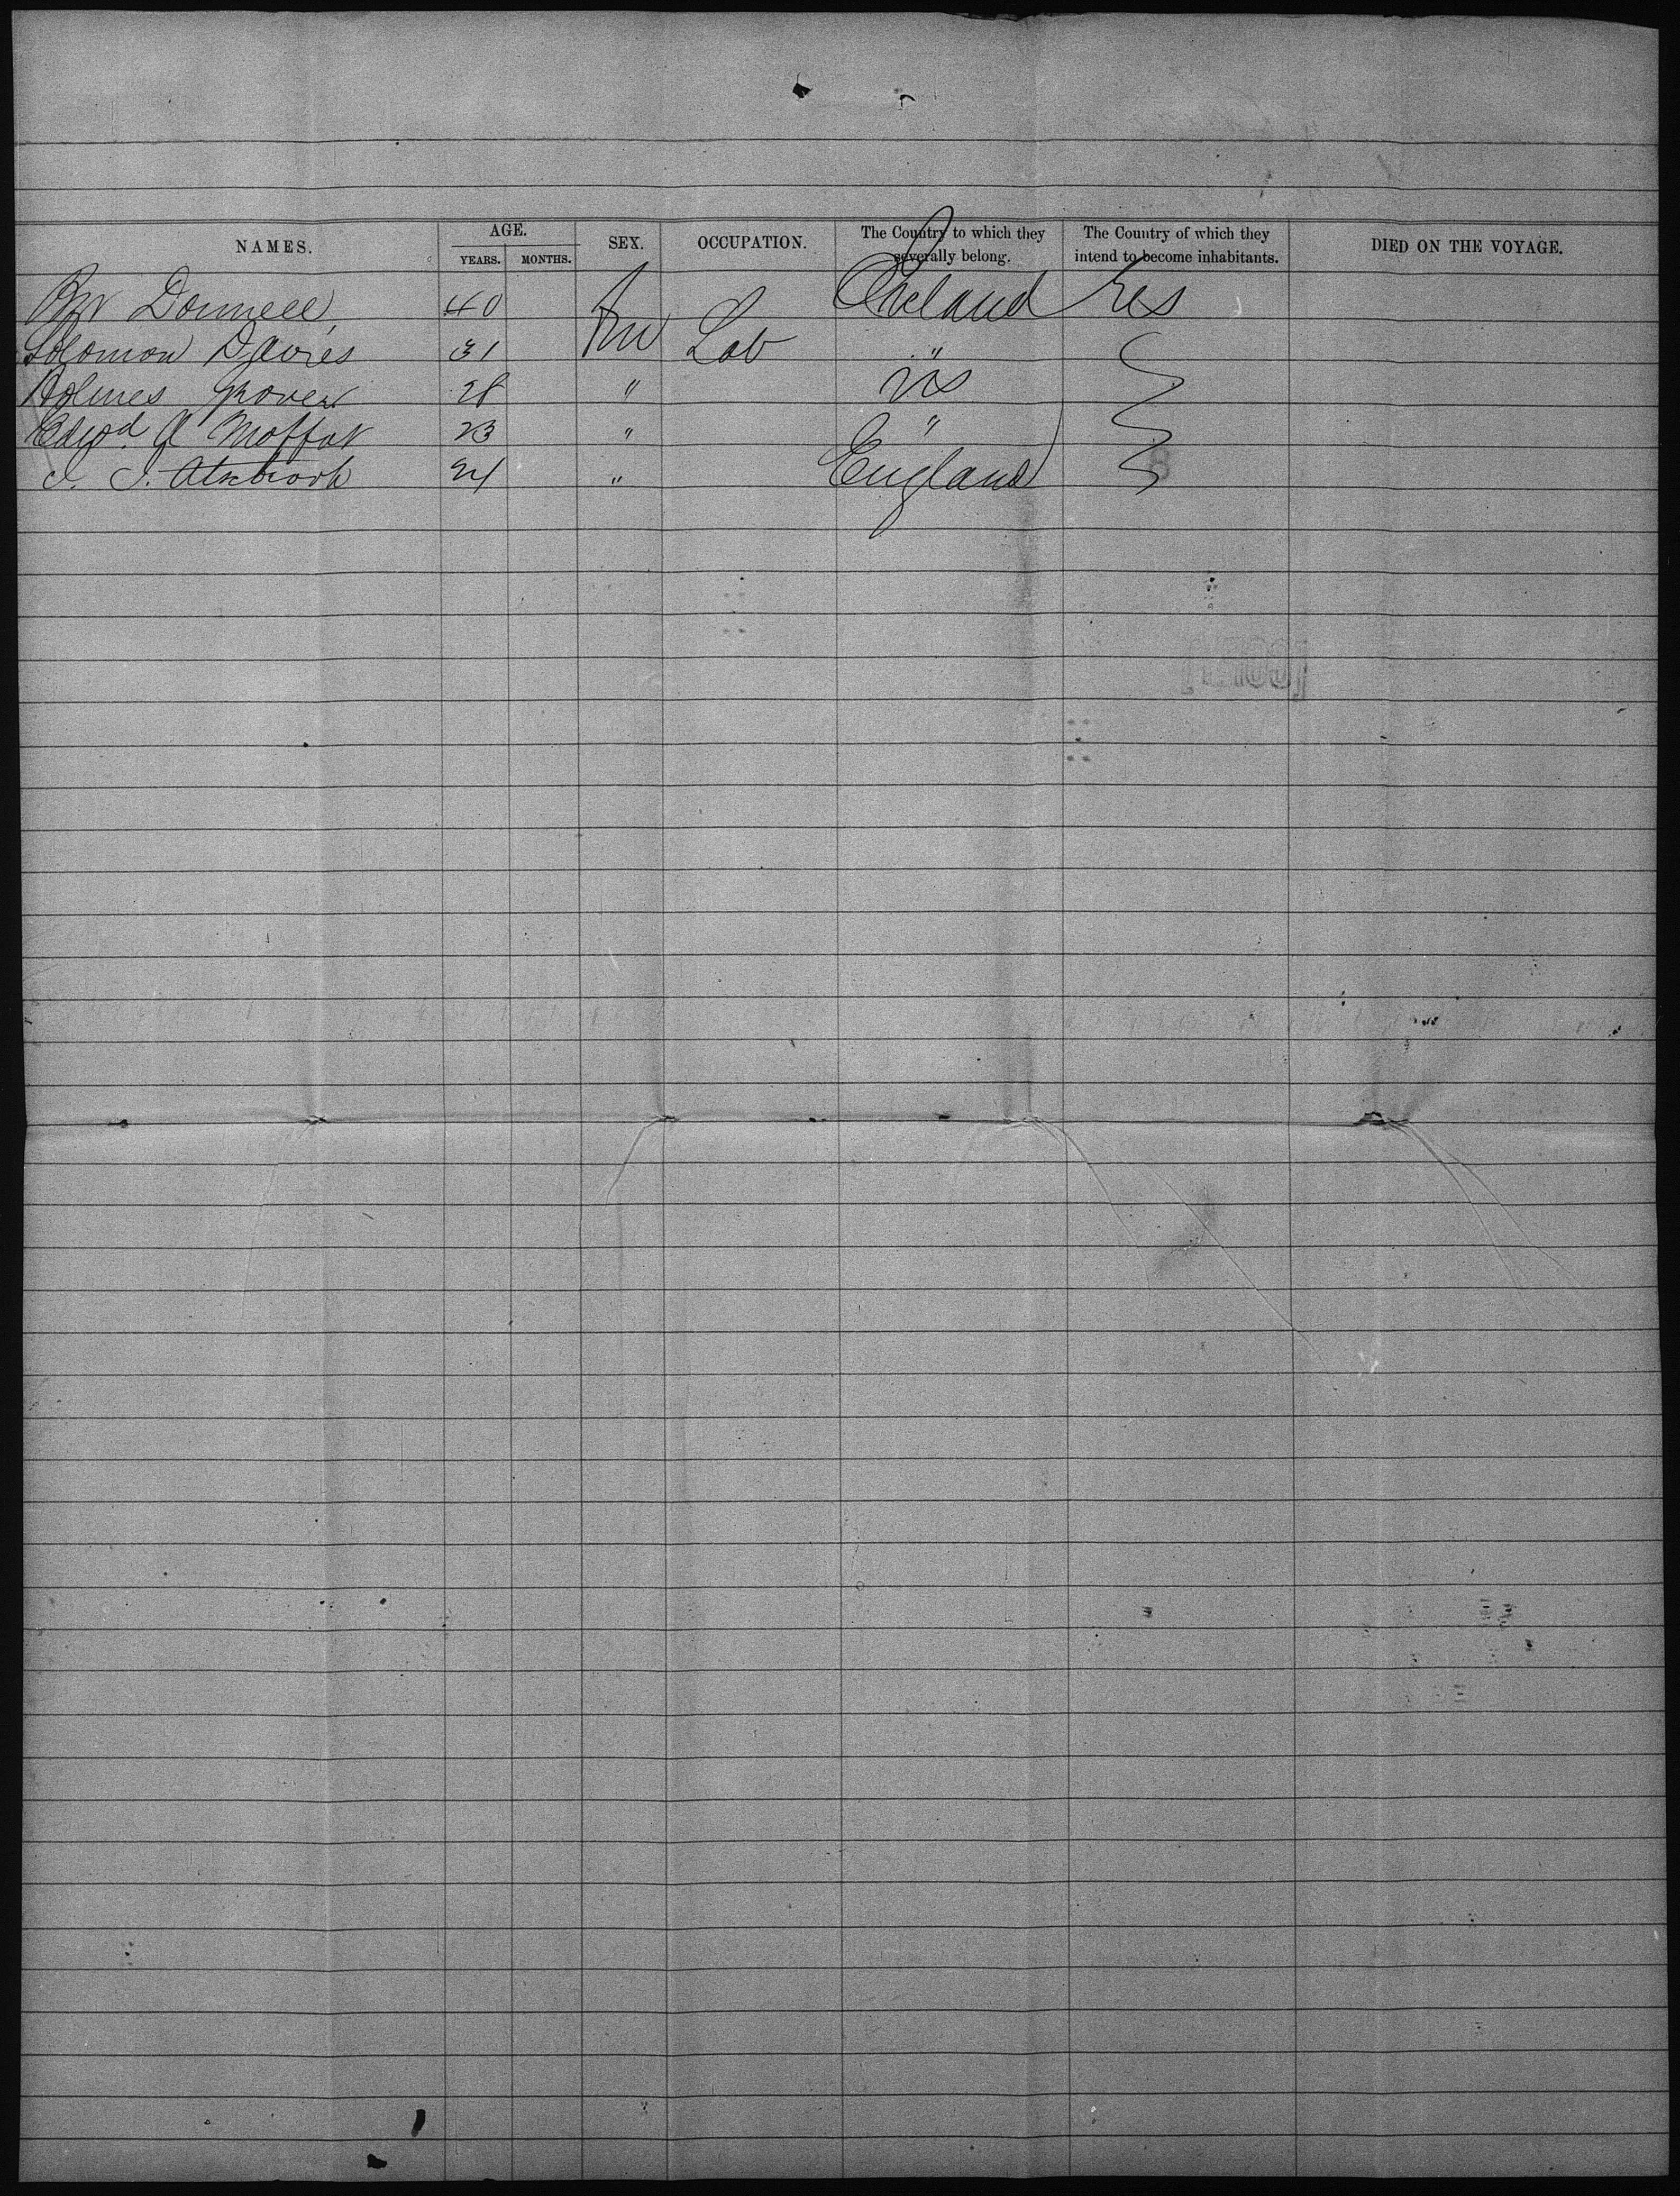 NAMES. AGE. SEX. OCCUPATION. The Country to which they severally belong. The Country of which they intend to become inhabitants. DIED ON THE VOYAGE.
YEARS. MONTHS.
Donnell 40 Ireland
Solomon Davies 31 m Lab "
Holmes Grover 28 " US
Edwd A Moffat 23 " "
24 " England